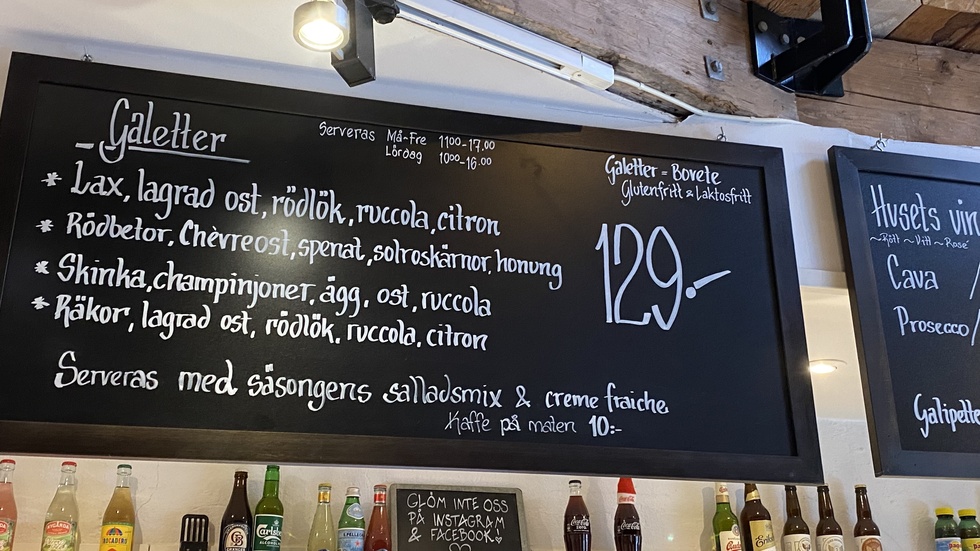 Galetter
Serveras Må-Fre 1100-17.00
Lördag 10⁰⁰-16.00
* Lax, lagrad ost, rödlök, ruccola, citron
* Rödbetor, Chèvreost, spenat, solroskärnor, honung
* Skinka, champinjoner, ägg, ost, ruccola
* Räkor, lagrad ost, rödlök, ruccola, citron
Serveras med säsongens salladsmix & creme fraiche
Kaffe på maten 10:-
Galetter = Bovete
Glutenfritt & Laktosfritt
129.-
Husets vin
~Rött ~Vitt ~Rosé
Cava
Prosecco
GLÖM INTE OSS
PÅ INSTAGRAM
& FACEBOOK
Carlsberg